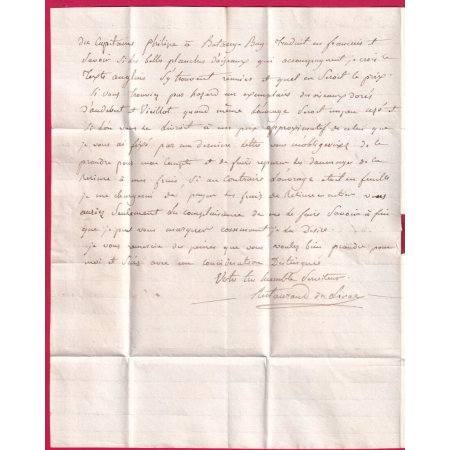 du Capitaine Philipe à Botany Bay traduit en francais et
savoir si les belles planches d'oiseaux qui accompagnent, je crois le
texte anglais s'y trouvent réunies et quel en serait le prix.
Si vous trouviez par hazard un exemplaire des oiseaux dorés
d'audebert et Vieillot quand même l'ouvrage serait un peu usé et
si l'on vous le livroit à un prix approximatif de celui que
je vous ai fixé par ma derniere lettre vous m'obligeriez de le
prendre pour mon compte et de faire reparer les dommages de la
reliure à mes frais, Si au contraire l'ouvrage etait en feuilles
je me chargerai de payer les frais de reliure entier vous
auriez seulement la complaisance de me le faire savoir à fin
que je pus vous marquer comment je la desire.
je vous remercie des peines que vous voulez bien prendre pour
moi et suis avec une consideration Distinguée
Votre tres humble Serviteur